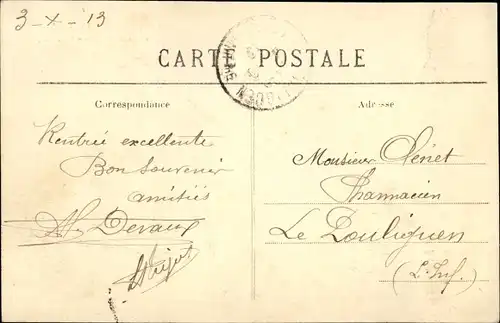 3-X-13
CARTE POSTALE
Correspondance
Adresse
Rentrée excellente
Bon souvenir
amitiés
Devaux
Monsieur
Pharmacien
Le Pouliguen
(L. Inf.)